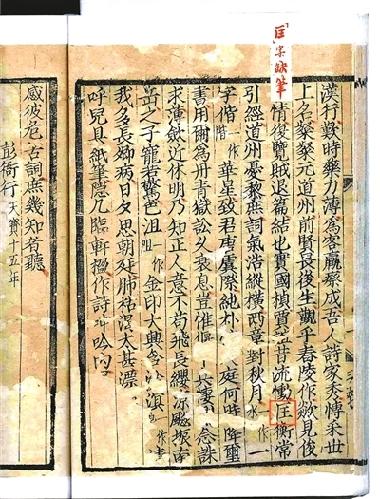 匡字缺筆
漢行歎時藥力薄為客羸瘵成吾人詩家秀博采世
上名粲粲元道州前賢畏後生觀乎舂陵作欻見俊
情復覽賊退篇結也實國楨賈誼昔流慟匡衡常
引經道州憂黎庶詞氣浩縱橫兩章對秋月一作水一
字偕一作華星致君唐虞際純朴大庭何時降璽
書用爾為丹青獄訟久衰息豈惟偃兵悽念誅
求薄斂近休明乃知正人意不苟飛長纓凉飈振南
岳之子寵若驚色沮一作金印大興含滄
我多長卿病日夕思朝廷肺枯渴太甚漂
呼兒具紙筆隱几臨軒楹作詩呻吟内
感彼危苦詞庶幾知者聽
彭衙行天寶十五年